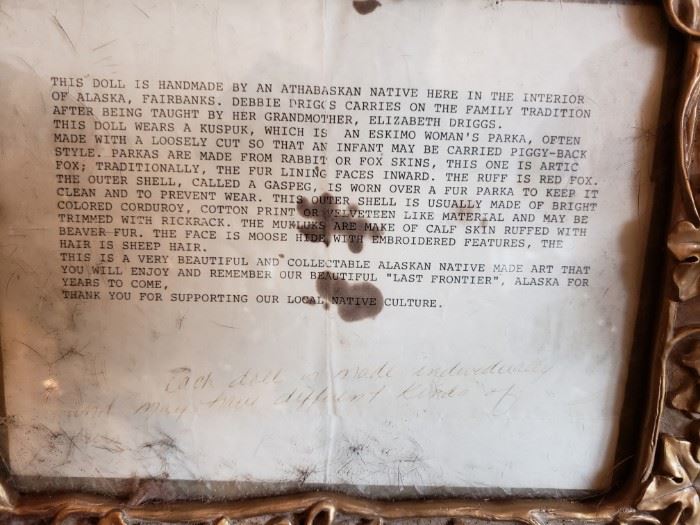 THIS DOLL IS HANDMADE BY AN ATHABASKAN NATIVE HERE IN THE INTERIOR
OF ALASKA, FAIRBANKS. DEBBIE DRIGGS CARRIES ON THE FAMILY TRADITION
AFTER BEING TAUGHT BY HER GRANDMOTHER, ELIZABETH DRIGGS.
THIS DOLL WEARS A KUSPUK, WHICH IS AN ESKIMO WOMAN'S PARKA, OFTEN
MADE WITH A LOOSELY CUT SO THAT AN INFANT MAY BE CARRIED PIGGY-BACK
STYLE. PARKAS ARE MADE FROM RABBIT OR FOX SKINS, THIS ONE IS ARTIC
FOX; TRADITIONALLY, THE FUR LINING FACES INWARD. THE RUFF IS RED FOX.
THE OUTER SHELL, CALLED A GASPEG, IS WORN OVER A FUR PARKA TO KEEP IT
CLEAN AND TO PREVENT WEAR. THIS OUTER SHELL IS USUALLY MADE OF BRIGHT
COLORED CORDUROY, COTTON PRINT OR VELVETEEN LIKE MATERIAL AND MAY BE
TRIMMED WITH RICKRACK. THE MUKLUKS ARE MAKE OF CALF SKIN RUFFED WITH
BEAVER FUR. THE FACE IS MOOSE HIDE WITH EMBROIDERED FEATURES, THE
HAIR IS SHEEP HAIR.
THIS IS A VERY BEAUTIFUL AND COLLECTABLE ALASKAN NATIVE MADE ART THAT
YOU WILL ENJOY AND REMEMBER OUR BEAUTIFUL "LAST FRONTIER", ALASKA FOR
YEARS TO COME,
THANK YOU FOR SUPPORTING OUR LOCAL NATIVE CULTURE.
Each doll is made individually
and may have different kinds of